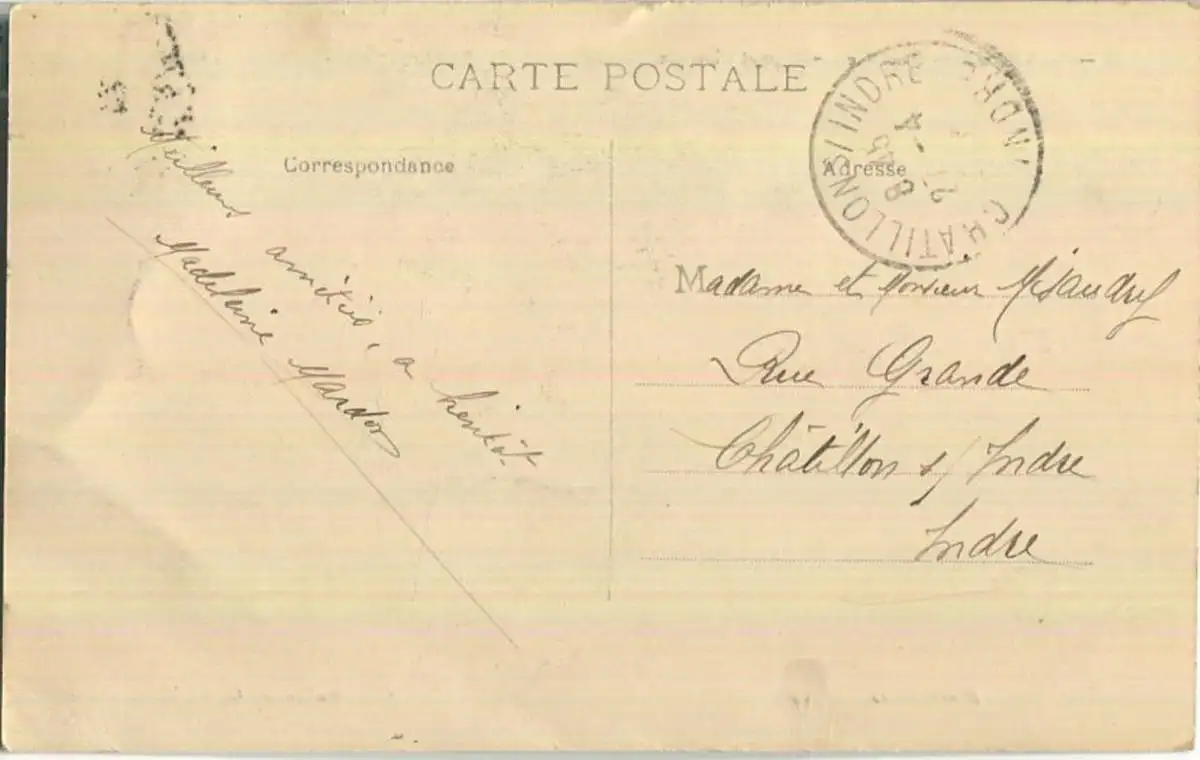 CARTE POSTALE
Correspondance
Adresse
CHATILLON S/ INDRE
Meilleures amitiés, a bientôt
Madeleine Mardor
Madame et Monsieur
Rue Grande
Châtillon s/ Indre
Indre